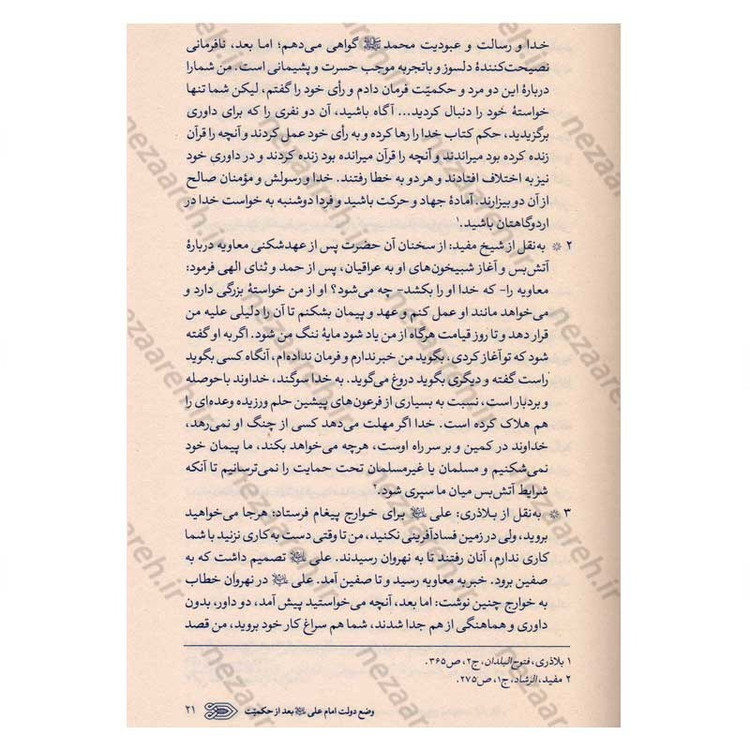 خدا و رسالت و عبودیت محمد ﷺ گواهی می‌دهم؛ اما بعد، نافرمانی
نصیحت‌کنندهٔ دلسوز و باتجربه موجب حسرت و پشیمانی است. من شما را
دربارهٔ این دو مرد و حکمیّت فرمان دادم و رأی خود را گفتم، لیکن شما تنها
خواستهٔ خود را دنبال کردید... آگاه باشید، آن دو نفری را که برای داوری
برگزیدید، حکم کتاب خدا را رها کرده و به رأی خود عمل کردند و آنچه را قرآن
زنده کرده بود میراندند و آنچه را قرآن میرانده بود زنده کردند و در داوری خود
نیز به اختلاف افتادند و هر دو به خطا رفتند. خدا و رسولش و مؤمنان صالح
از آن دو بیزارند. آمادهٔ جهاد و حرکت باشید و فردا دوشنبه به خواست خدا در
اردوگاهتان باشید.۱
۲ به‌نقل از شیخ مفید: از سخنان آن حضرت پس از عهدشکنی معاویه دربارهٔ
آتش‌بس و آغاز شبیخون‌های او به عراقیان، پس از حمد و ثنای الهی فرمود:
معاویه را- که خدا او را بکشد- چه می‌شود؟ او از من خواستهٔ بزرگی دارد و
می‌خواهد مانند او عمل کنم و عهد و پیمان بشکنم تا آن را دلیلی علیه من
قرار دهد و تا روز قیامت هرگاه از من یاد شود مایهٔ ننگ من شود. اگر به او گفته
شود که تو آغاز کردی، بگوید من خبر ندارم و فرمان نداده‌ام، آنگاه کسی بگوید
راست گفته و دیگری بگوید دروغ می‌گوید. به خدا سوگند، خداوند باحوصله
و بردبار است، نسبت به بسیاری از فرعون‌های پیشین حلم ورزیده و عده‌ای را
هم هلاک کرده است. خدا اگر مهلت می‌دهد کسی از چنگ او نمی‌رهد،
خداوند در کمین و بر سر راه اوست، هرچه می‌خواهد بکند، ما پیمان خود
نمی‌شکنیم و مسلمان یا غیرمسلمان تحت حمایت را نمی‌ترسانیم تا آنکه
شرایط آتش‌بس میان ما سپری شود.۲
۳ به‌نقل از بلاذری: علی برای خوارج پیغام فرستاد: هرجا می‌خواهید
بروید، ولی در زمین فسادآفرینی نکنید، من تا وقتی دست به کاری نزنید با شما
کاری ندارم، آنان رفتند تا به نهروان رسیدند. علی تصمیم داشت که به
صفین برود. خبر به معاویه رسید و تا صفین آمد. علی در نهروان خطاب
به خوارج چنین نوشت: اما بعد، آنچه می‌خواستید پیش آمد، دو داور، بدون
داوری و هماهنگی از هم جدا شدند، شما هم سراغ کار خود بروید، من قصد
۱ بلاذری، فتوح‌البلدان، ج۲، ص۳۶۵.
۲ مفید، الرشاد، ج۱، ص۲۷۵.
وضع دولت امام علی بعد از حکمیّت ۲۱
nezaareh.ir